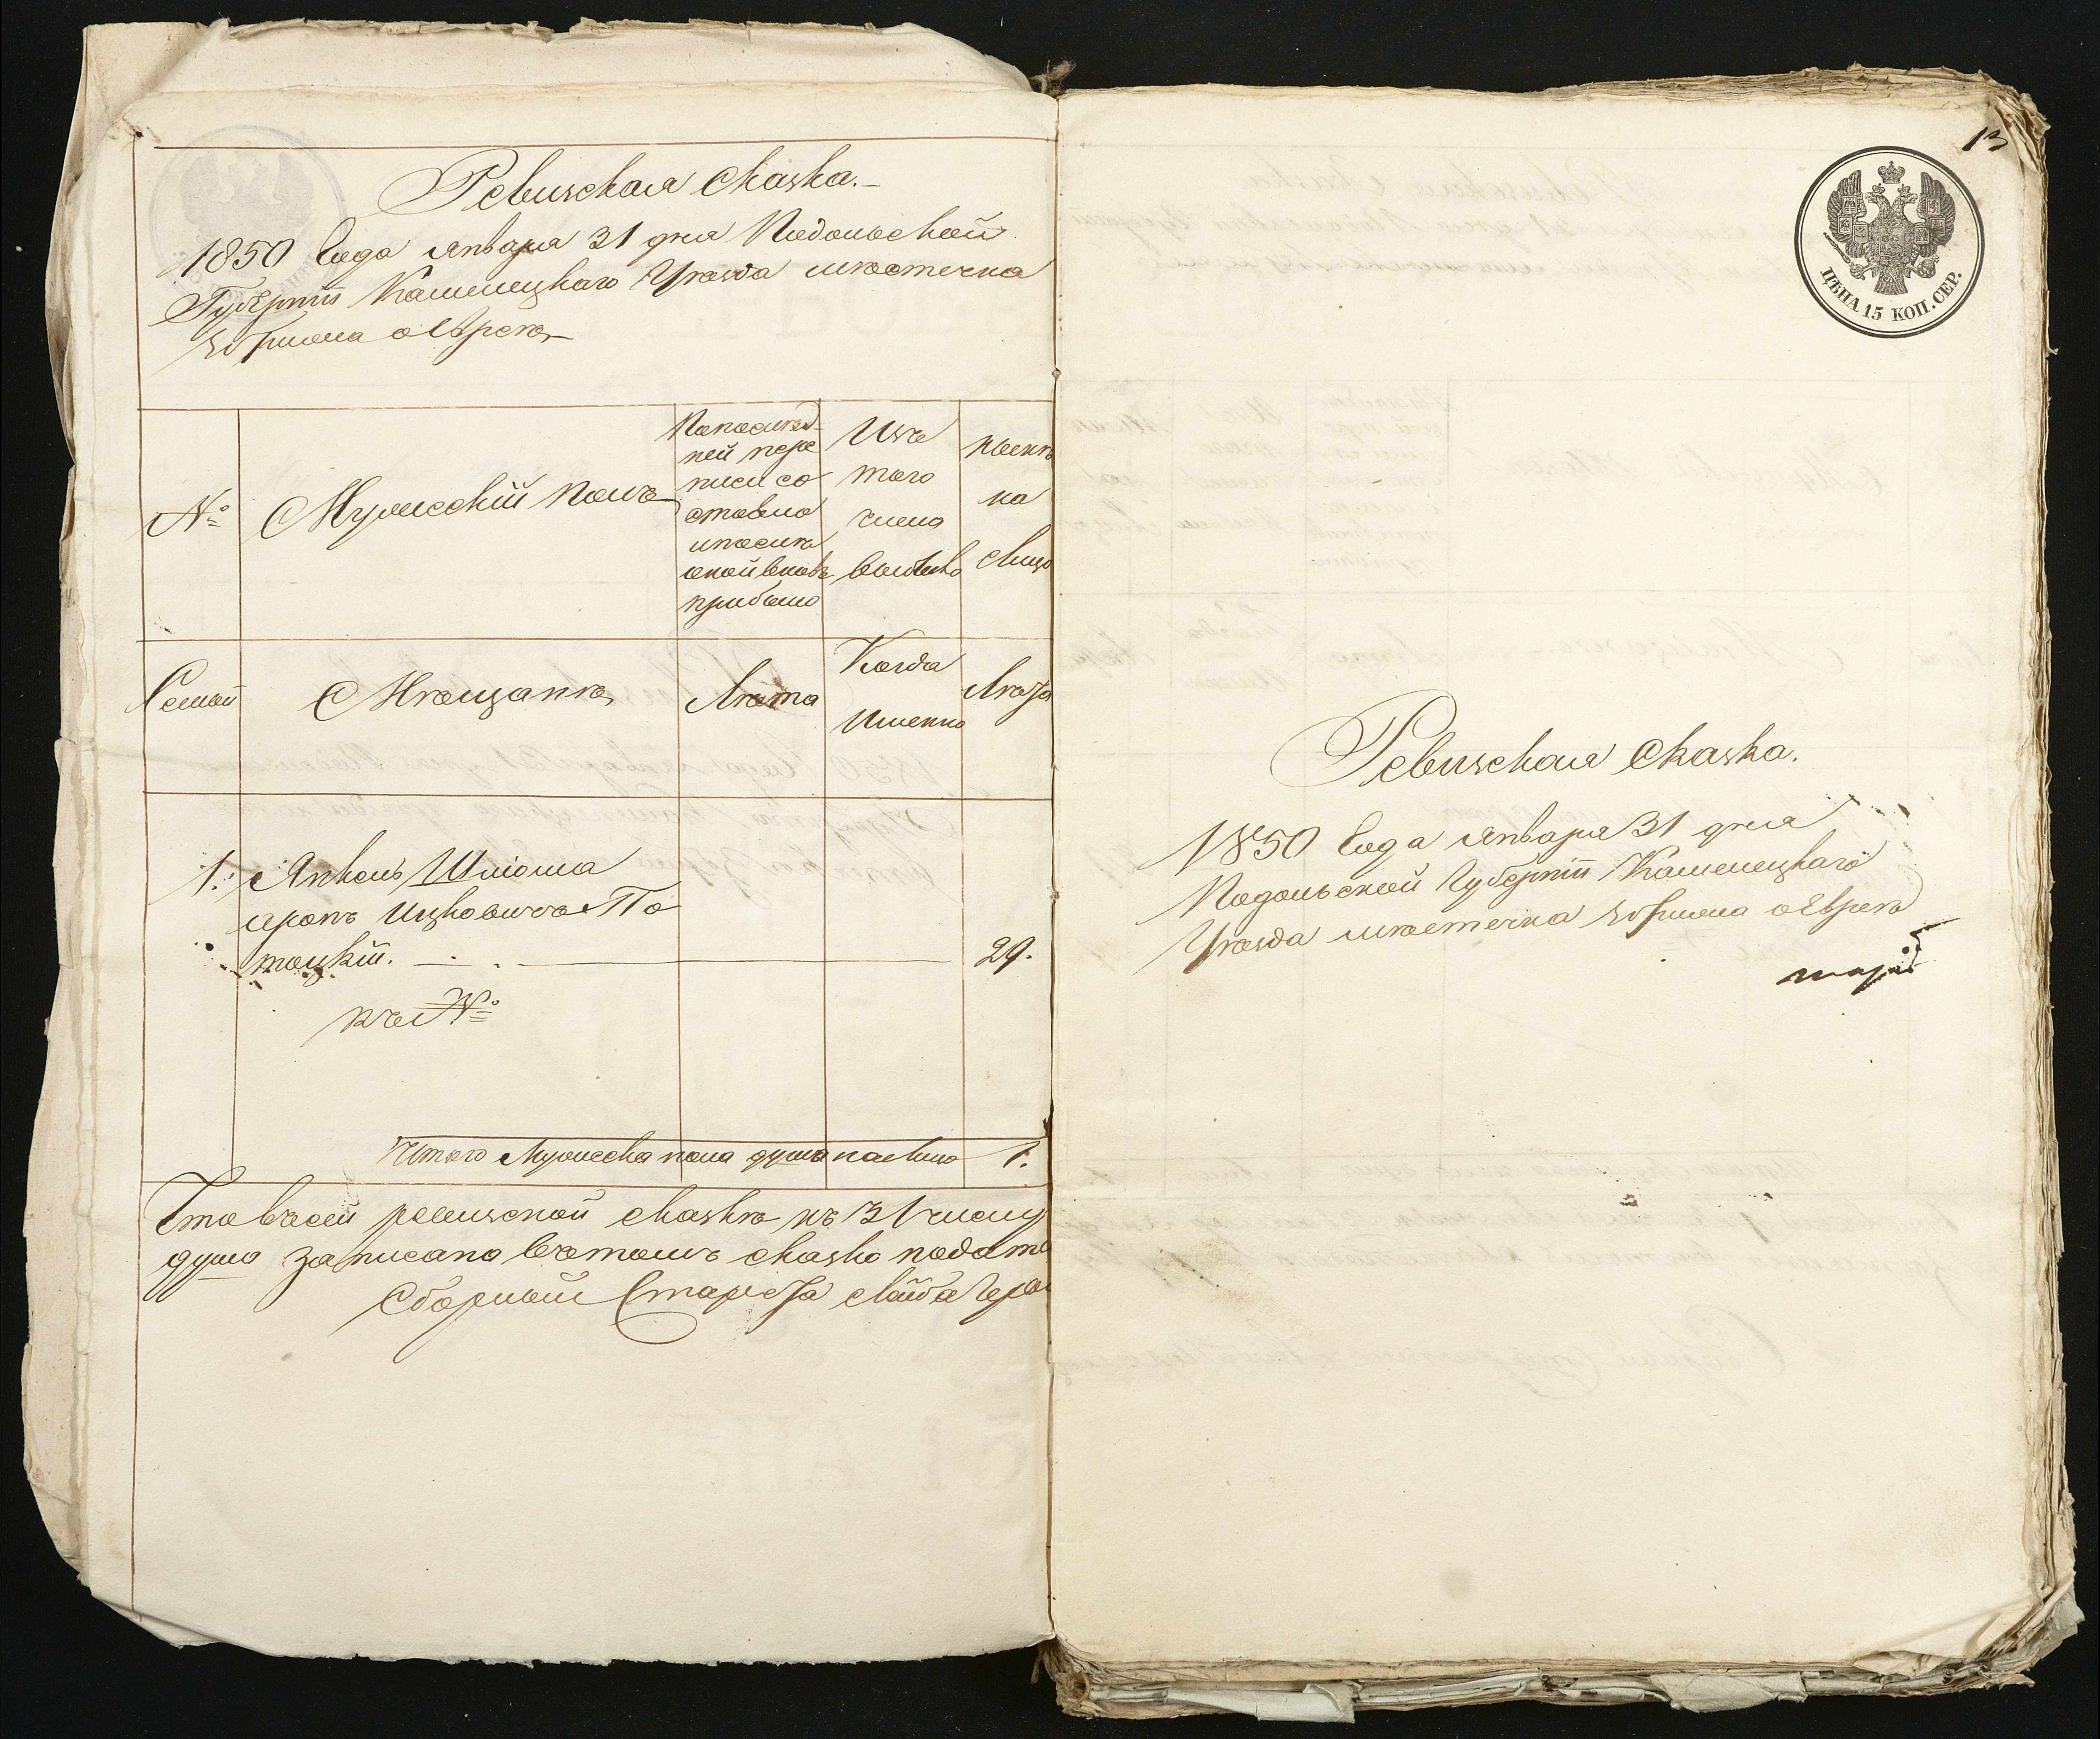 Ревизская Сказка.
1850 Года января 31 дня Подольской
Губернiи Каменецкаго Уѣзда мѣстечка
о Еврѣѣ
№
Мужескiй полъ
Попослѣд-
ней пере
писи со
стояло
и послѣ
оной вновь
прибыло
Изъ
того
числа
выбыло
Нынѣ
на
лицо
Семьи
Мѣщанѣ
Лѣта
Когда
Именно
Лѣта
1. Анкель Шліома
аронъ Ицковичъ По
тоцкiй. 29.
къ №
Итого Мужеска пола душъ на лицо 1.
Что въ сей ревизской сказкѣ къ 31 числу
душъ записано въ томъ сказка
Сборный Староста
13
ЦѢНА 15 КОП. СЕР.
Ревизская Сказка.
1850 Года января 31 дня
Подольской Губернiи Каменецкаго
Уѣзда мѣстечка о Еврѣѣ